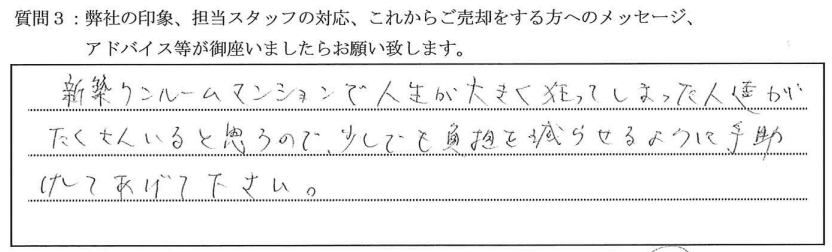 質問3：弊社の印象、担当スタッフの対応、これからご売却をする方へのメッセージ、
アドバイス等が御座いましたらお願い致します。
新築ワンルームマンションで人生が大きく狂ってしまった人達が
たくさんいると思うので、少しでも負担を減らせるように手助
けしてあげて下さい。